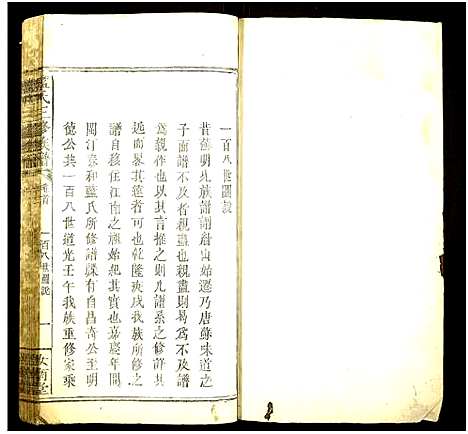 一百八世圖說
昔蘇明允族譜謂眉山始遷乃唐蘇味道之
子而譜不及者親盡也親盡則曷為不及譜
為親作也以其言推之則凡譜系之修詳其
近而畧其遠者可矣乾隆庚戌我族所修之
譜自移住江南之旒始起其實也嘉慶年間
閩汀泰和藍氏所修譜牒有自昌奇公至明
德公共一百八世道光壬午我族重修家乘
藍氏三修族譜
卷首
一百八世圖說
一
汝南堂